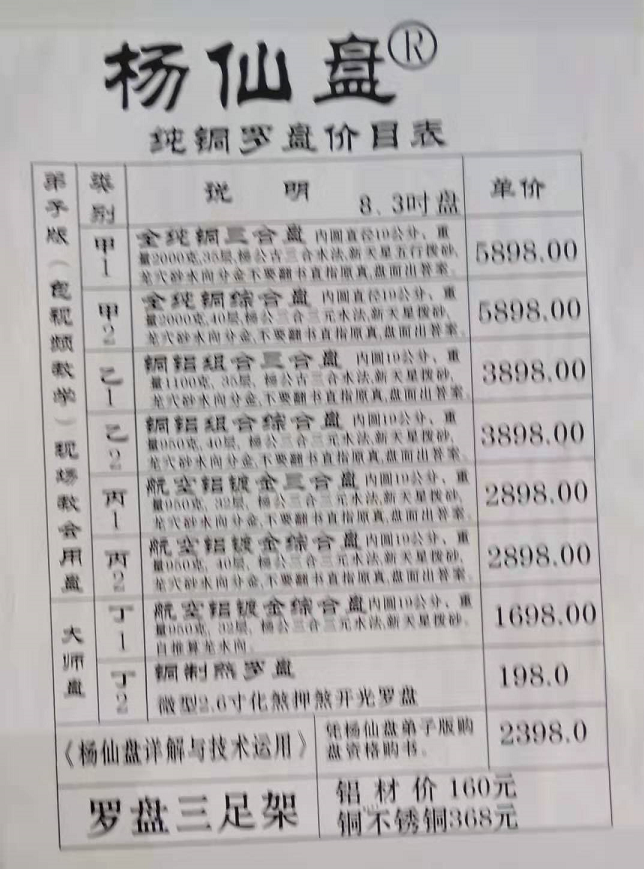 杨仙盘®
纯铜罗盘价目表
弟子版（包视频教学）现场教会用盘
类别
说 明 8.3吋盘
单价
甲1
全纯铜三合盘 内圆直径19公分、重
量2000克,35层,杨公古三合水法,新天星五行拨砂,
龙穴砂水向分金不要翻书直指原真,盘面出答案。
5898.00
甲2
全纯铜综合盘 内圆直径19公分、重
量2000克,40层,杨公三合三元水法,新天星拨砂,
龙穴砂水向分金,不要翻书直指原真,盘面出答案。
5898.00
乙1
铜铝组合三合盘 内圆19公分、重
量1100克, 35层, 杨公古三合水法,新天星拨砂,
龙穴砂水向分金,不要翻书直指原真,盘面出答案。
3898.00
乙2
铜铝组合综合盘 内圆19公分、重
量950克, 40层, 杨公三合三元水法,新天星拨砂,
龙穴砂水向分金,不要翻书直指原真,盘面出答案。
3898.00
丙1
航空铝镀金三合盘 内圆19公分、重
量950克, 32层, 杨公三合三元水法,新天星拨砂,
龙穴砂水向分金,不要翻书直指原真,盘面出答案。
2898.00
丙2
航空铝镀金综合盘 内圆19公分、重
量950克, 40层, 杨公三合三元水法,新天星拨砂,
龙穴砂水向分金,不要翻书直指原真,盘面出答案。
2898.00
大师盘
丁1
航空铝镀金综合盘 内圆19公分、重
量950克, 32层, 杨公三合三元水法,新天星拨砂,
自推算龙水向。
1698.00
丁2
铜制煞罗盘
微型2.6寸化煞押煞开光罗盘
198.0
《杨仙盘详解与技术运用》
凭杨仙盘弟子版购
盘资格购书。
2398.0
罗盘三足架
铝 材 价 160元
铜不锈铜368元